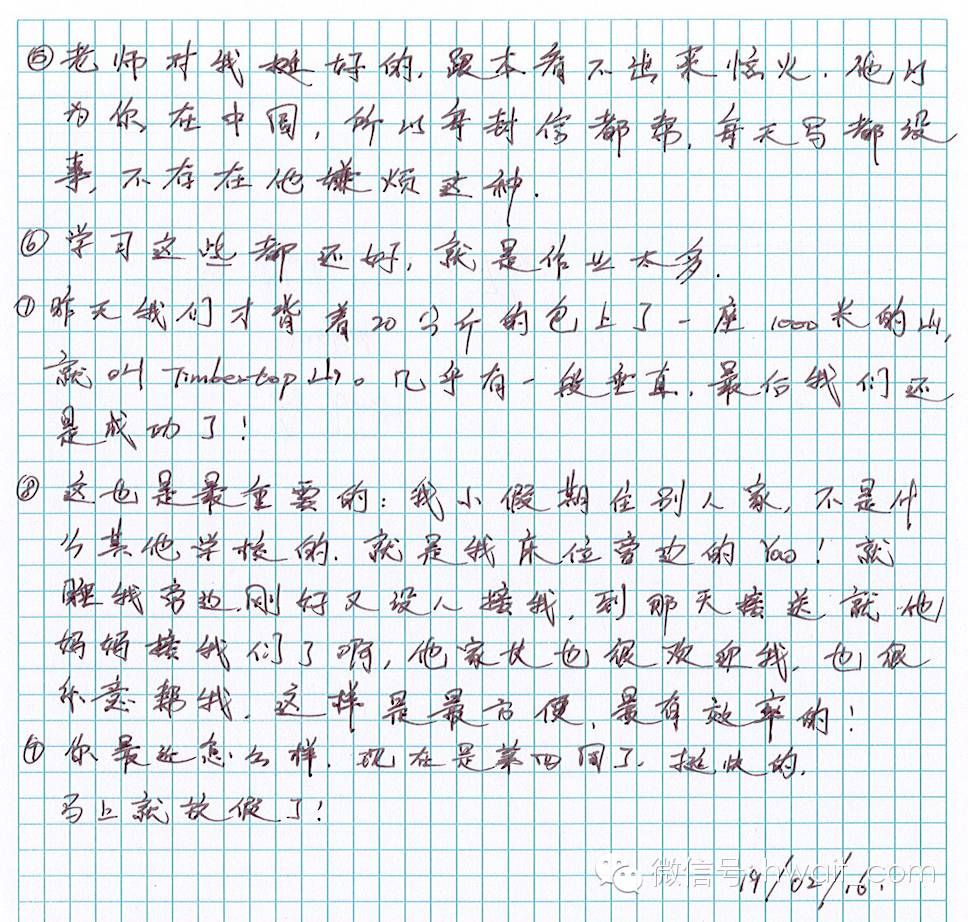 ⑤老师对我挺好的,跟本看不出来恼火.他以
为你在中国,所以每封信都帮,每天写都没
事,不存在他嫌烦这种.
⑥学习这些都还好,就是作业太多.
⑦昨天我们才背着20公斤的包上了一座1000米的山,
就叫Timbertop山。几乎有一段垂直.最后我们还
是成功了!
⑧这也是最重要的:我小假期住别人家,不是什
么其他学校的.就是我床位旁边的Yao!就
睡我旁边,刚好又没人接我,到那天接送,就他
妈妈接我们了啊,他家也很欢迎我,也很
乐意帮我.这样是最方便,最有效率的!
你最近怎么样.现在是第四周了.挺快的.
马上就放假了!
微信号:hwgjt_com
19/02/16.